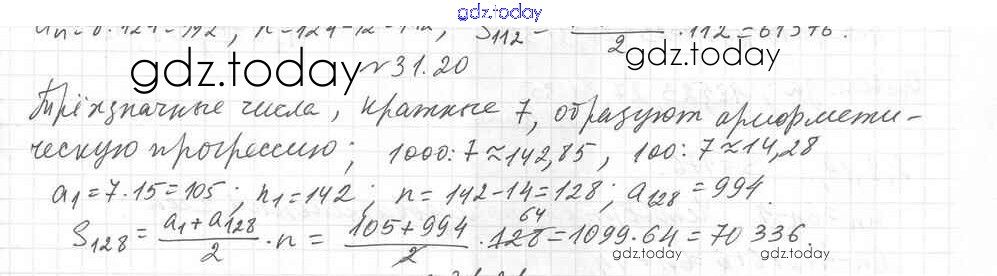 gdz.today
aₙ=8·124=992; n=124-12=112; S₁₁₂= 2 ·112=61376.
gdz.today
gdz.today
№31.20
Трёхзначные числа, кратные 7, образуют арифмети-
ческую прогрессию; 1000:7≈142,85, 100:7≈14,28
a₁=7·15=105; n₁=142; n=142-14=128; a₁₂₈=994.
S₁₂₈= (a₁+a₁₂₈)/2 ·n = (105+994)/2 ·128 64 =1099·64=70 336.
gdz.today
gdz.today